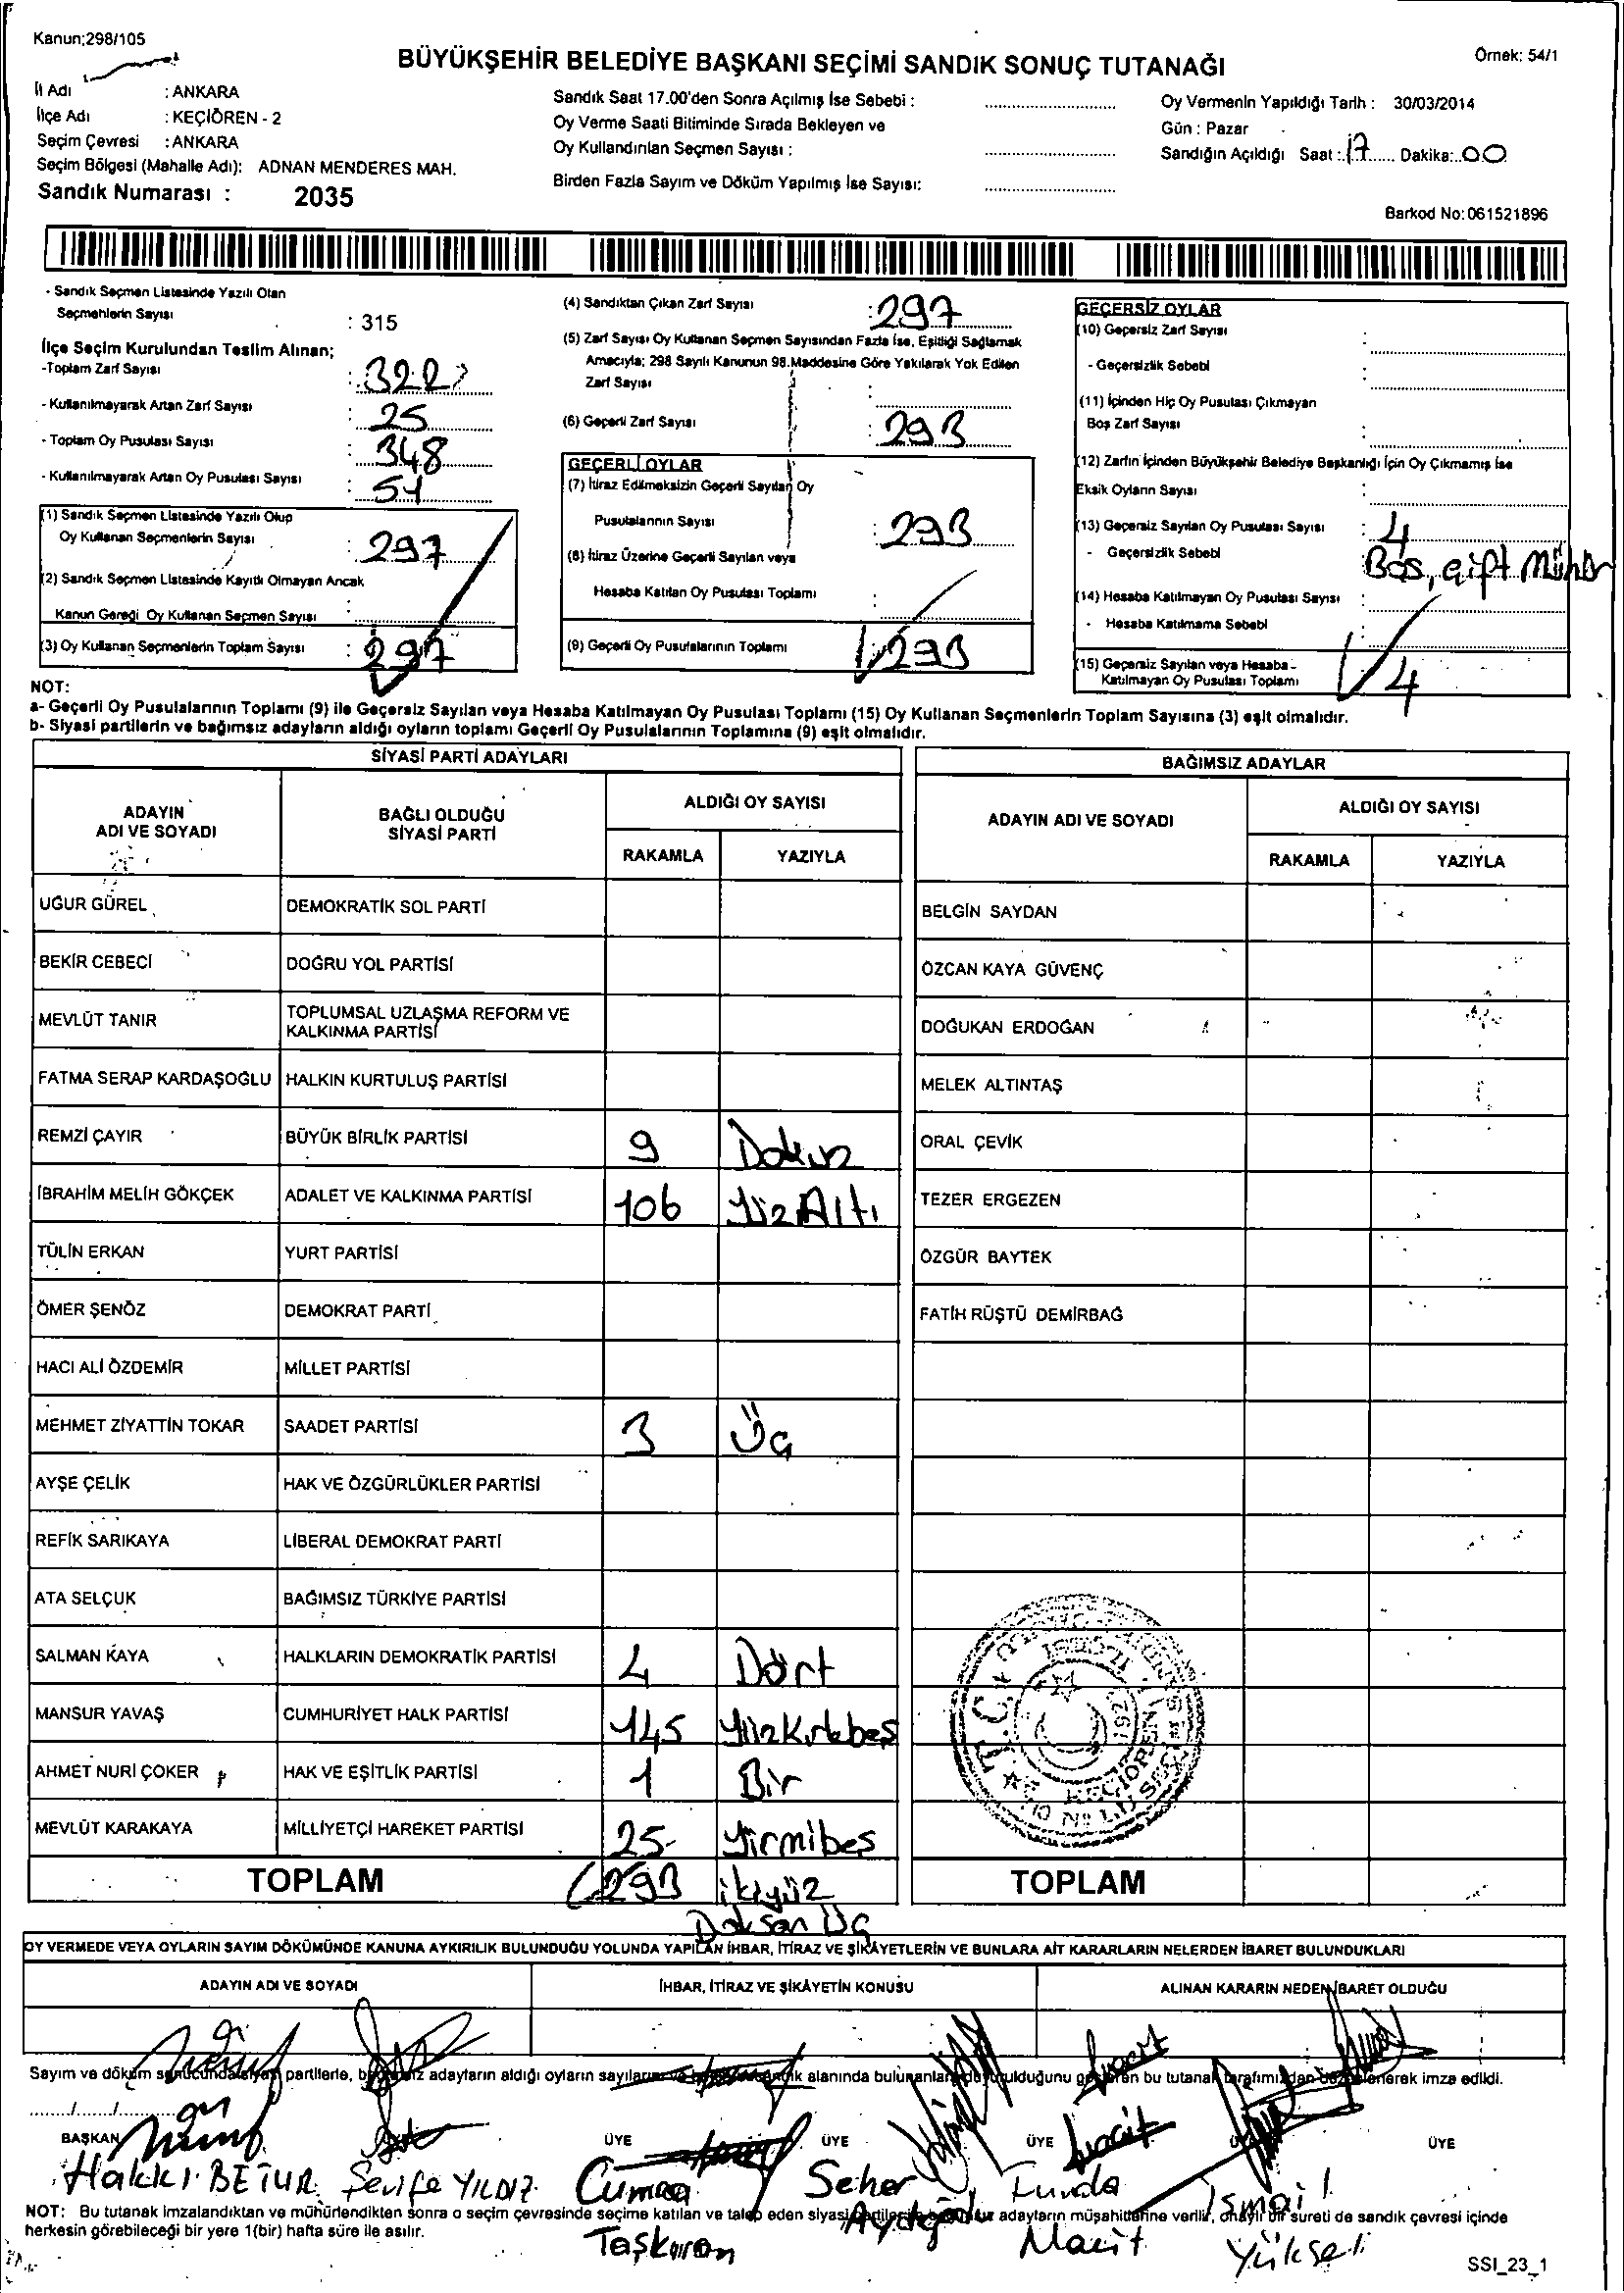 Kanun;298/105
BÜYÜKŞEHİR BELEDİYE BAŞKANI SEÇİMİ SANDIK SONUÇ TUTANAĞI
Örnek: 54/1
İl Adı : ANKARA
İlçe Adı : KEÇİÖREN - 2
Seçim Çevresi : ANKARA
Seçim Bölgesi (Mahalle Adı): ADNAN MENDERES MAH.
Sandık Numarası : 2035
Sandık Saat 17.00'den Sonra Açılmış İse Sebebi :
Oy Verme Saati Bitiminde Sırada Bekleyen ve
Oy Kullandırılan Seçmen Sayısı :
Birden Fazla Sayım ve Döküm Yapılmış İse Sayısı:
Oy Vermenin Yapıldığı Tarih : 30/03/2014
Gün : Pazar
Sandığın Açıldığı Saat : 17 Dakika: 00
Barkod No: 061521896
- Sandık Seçmen Listesinde Yazılı Olan
Seçmenlerin Sayısı : 315
İlçe Seçim Kurulundan Teslim Alınan;
-Toplam Zarf Sayısı : 322
- Kullanılmayarak Artan Zarf Sayısı : 25
- Toplam Oy Pusulası Sayısı : 348
- Kullanılmayarak Artan Oy Pusulası Sayısı : 51
(1) Sandık Seçmen Listesinde Yazılı Olup
Oy Kullanan Seçmenlerin Sayısı : 297
(2) Sandık Seçmen Listesinde Kayıtlı Olmayan Ancak
Kanun Gereği Oy Kullanan Seçmen Sayısı :
(3) Oy Kullanan Seçmenlerin Toplam Sayısı : 297
(4) Sandıktan Çıkan Zarf Sayısı : 297
(5) Zarf Sayısı Oy Kullanan Seçmen Sayısından Fazla İse, Eşitliği Sağlamak
Amacıyla; 298 Sayılı Kanunun 98.Maddesine Göre Yakılarak Yok Edilen
Zarf Sayısı :
(6) Geçerli Zarf Sayısı : 293
GEÇERLİ OYLAR
(7) İtiraz Edilmeksizin Geçerli Sayılan Oy
Pusulalarının Sayısı : 293
(8) İtiraz Üzerine Geçerli Sayılan veya
Hesaba Katılan Oy Pusulası Toplamı :
(9) Geçerli Oy Pusulalarının Toplamı 293
GEÇERSİZ OYLAR
(10) Geçersiz Zarf Sayısı :
- Geçersizlik Sebebi :
(11) İçinden Hiç Oy Pusulası Çıkmayan
Boş Zarf Sayısı :
(12) Zarfın İçinden Büyükşehir Belediye Başkanlığı İçin Oy Çıkmamış İse
Eksik Oyların Sayısı :
(13) Geçersiz Sayılan Oy Pusulası Sayısı : 4
- Geçersizlik Sebebi : Boş, çift Mühür
(14) Hesaba Katılmayan Oy Pusulası Sayısı :
- Hesaba Katılmama Sebebi
(15) Geçersiz Sayılan veya Hesaba
Katılmayan Oy Pusulası Toplamı 4
NOT:
a- Geçerli Oy Pusulalarının Toplamı (9) ile Geçersiz Sayılan veya Hesaba Katılmayan Oy Pusulası Toplamı (15) Oy Kullanan Seçmenlerin Toplam Sayısına (3) eşit olmalıdır.
b- Siyasi partilerin ve bağımsız adayların aldığı oyların toplamı Geçerli Oy Pusulalarının Toplamına (9) eşit olmalıdır.
SİYASİ PARTİ ADAYLARI
ADAYIN ADI VE SOYADI BAĞLI OLDUĞU SİYASİ PARTİ ALDIĞI OY SAYISI
RAKAMLA YAZIYLA
UĞUR GÜREL DEMOKRATİK SOL PARTİ
BEKİR CEBECİ DOĞRU YOL PARTİSİ
MEVLÜT TANIR TOPLUMSAL UZLAŞMA REFORM VE KALKINMA PARTİSİ
FATMA SERAP KARDAŞOĞLU HALKIN KURTULUŞ PARTİSİ
REMZİ ÇAYIR BÜYÜK BİRLİK PARTİSİ 9 Dokuz
İBRAHİM MELİH GÖKÇEK ADALET VE KALKINMA PARTİSİ 106 YüzAltı
TÜLİN ERKAN YURT PARTİSİ
ÖMER ŞENÖZ DEMOKRAT PARTİ
HACI ALİ ÖZDEMİR MİLLET PARTİSİ
MEHMET ZİYATTİN TOKAR SAADET PARTİSİ 3 Üç
AYŞE ÇELİK HAK VE ÖZGÜRLÜKLER PARTİSİ
REFİK SARIKAYA LİBERAL DEMOKRAT PARTİ
ATA SELÇUK BAĞIMSIZ TÜRKİYE PARTİSİ
SALMAN KAYA HALKLARIN DEMOKRATİK PARTİSİ 4 Dört
MANSUR YAVAŞ CUMHURİYET HALK PARTİSİ 145 Yüzkırkbeş
AHMET NURİ ÇOKER HAK VE EŞİTLİK PARTİSİ 1 Bir
MEVLÜT KARAKAYA MİLLİYETÇİ HAREKET PARTİSİ 25 Yirmibeş
TOPLAM 293 ikiyüz
Doksan Üç
BAĞIMSIZ ADAYLAR
ADAYIN ADI VE SOYADI ALDIĞI OY SAYISI
RAKAMLA YAZIYLA
BELGİN SAYDAN
ÖZCAN KAYA GÜVENÇ
DOĞUKAN ERDOĞAN
MELEK ALTINTAŞ
ORAL ÇEVİK
TEZER ERGEZEN
ÖZGÜR BAYTEK
FATİH RÜŞTÜ DEMİRBAĞ
TOPLAM
OY VERMEDE VEYA OYLARIN SAYIM DÖKÜMÜNDE KANUNA AYKIRILIK BULUNDUĞU YOLUNDA YAPILAN İHBAR, İTİRAZ VE ŞİKÂYETLERİN VE BUNLARA AİT KARARLARIN NELERDEN İBARET BULUNDUKLARI
ADAYIN ADI VE SOYADI İHBAR, İTİRAZ VE ŞİKÂYETİN KONUSU ALINAN KARARIN NEDEN İBARET OLDUĞU
Sayım ve döküm sonucunda siyasi partilerle, bağımsız adayların aldığı oyların sayılarını alanında bulunanlara duyurulduğunu gösteren bu tutanak tarafımızdan düzenlenerek imza edildi.
BAŞKAN ÜYE ÜYE ÜYE ÜYE
Hakkı BETUR Şerife YILDIZ Cumaa Seher Funda İsmail
Taşkıran Aydoğdu Macit Yüksel
NOT: Bu tutanak imzalandıktan ve mühürlendikten sonra o seçim çevresinde seçime katılan ve talep eden siyasi partilerin adayların müşahitlerine verilir, onaylı bir sureti de sandık çevresi içinde
herkesin görebileceği bir yere 1(bir) hafta süre ile asılır.
SSI_23_1